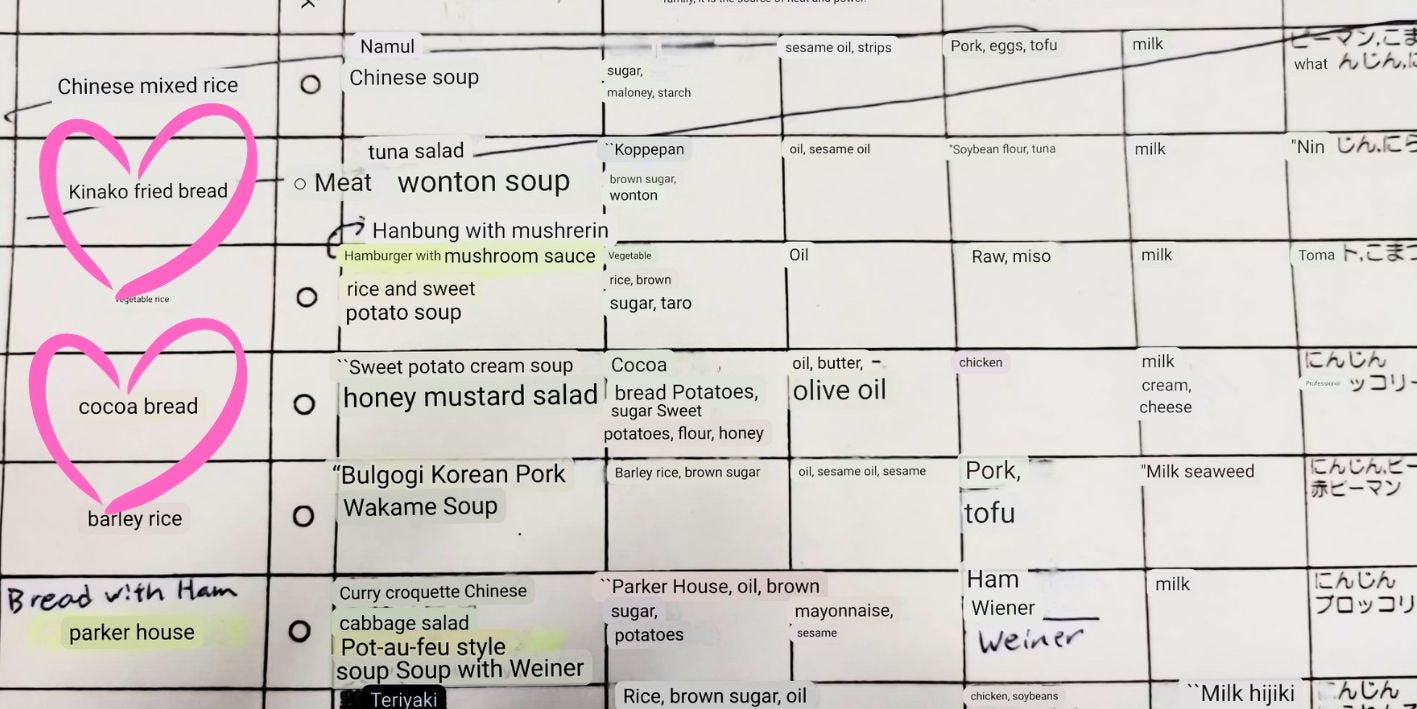 family, it is the source of heat and power.
Namul
sesame oil, strips
Pork, eggs, tofu
milk
ピーマン,こま
Chinese mixed rice
Chinese soup
sugar,
maloney, starch
what んじん,に
tuna salad
``Koppepan
oil, sesame oil
"Soybean flour, tuna
milk
"Nin じん,にら
Kinako fried bread
○ Meat wonton soup
brown sugar,
wonton
Hanbung with mushrerin
Hamburger with mushroom sauce
Vegetable
Oil
Raw, miso
milk
Toma ト,こまつ
vegetable rice
rice and sweet
potato soup
rice, brown
sugar, taro
``Sweet potato cream soup
Cocoa
oil, butter,
chicken
milk
にんじん
cocoa bread
honey mustard salad
bread Potatoes,
sugar Sweet
potatoes, flour, honey
olive oil
cream,
cheese
Professional ッコリー
“Bulgogi Korean Pork
Barley rice, brown sugar
oil, sesame oil, sesame
Pork,
"Milk seaweed
にんじん,ピー
barley rice
Wakame Soup
tofu
赤ピーマン
Bread with Ham
Curry croquette Chinese
``Parker House, oil, brown
Ham
milk
にんじん
parker house
cabbage salad
sugar,
mayonnaise,
Wiener
ブロッコリ
Pot-au-feu style
potatoes
sesame
Weiner
soup Soup with Weiner
Teriyaki
Rice, brown sugar, oil
chicken, soybeans
``Milk hijiki
んじん